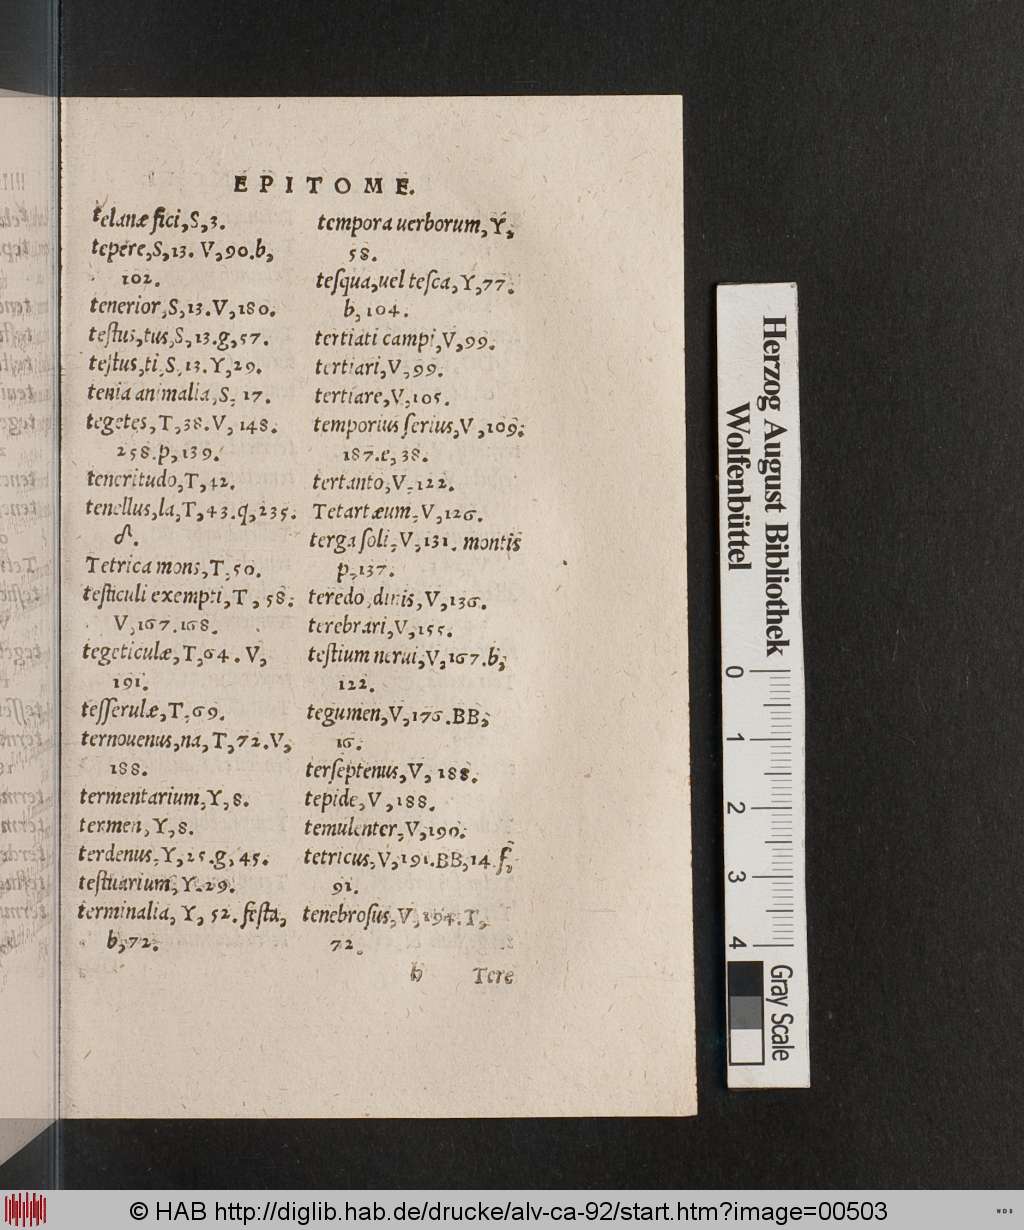 EPITOME.
telanæ fici, S, 3.
tepere, S, 13. V, 90. b,
102.
tenerior, S, 13. V, 180.
testus, tus, S, 13. g, 57.
testus, ti, S, 13. Y, 29.
tenia animalia, S, 17.
tegetes, T, 38. V, 148.
258. p, 139.
teneritudo, T, 42.
tenellus, la, T, 43. q, 235.
Tetrica mons, T, 50.
testiculi exempti, T, 58.
V, 167. 168.
tegeticulæ, T, 64. V,
191.
tesserulæ, T, 69.
ternouenus, na, T, 72. V,
188.
termentarium, Y, 8.
termen, Y, 8.
terdenus, Y, 25. g, 45.
testuarium, Y. 29.
terminalia, Y, 52. festa,
b, 72.
tempora uerborum, Y,
58.
tesqua, uel tesca, Y, 77.
b, 104.
tertiati campi, V, 99.
tertiari, V, 99.
tertiare, V, 105.
temporius serius, V, 109.
187. e, 38.
tertanto, V, 122.
Tetartæum, V, 126.
terga soli, V, 131. montis
p, 137.
teredo, dinis, V, 136.
terebrari, V, 155.
testium nerui, V, 167. b,
122.
tegumen, V, 176. BB,
16.
terseptenus, V, 188.
tepide, V, 188.
temulenter, V, 190.
tetricus, V, 191. BB, 14. f,
91.
tenebrosus, V, 194. T,
72.
b Tere
Herzog August Bibliothek
Wolfenbüttel
0 1 2 3 4
Gray Scale
© HAB http://diglib.hab.de/drucke/alv-ca-92/start.htm?image=00503